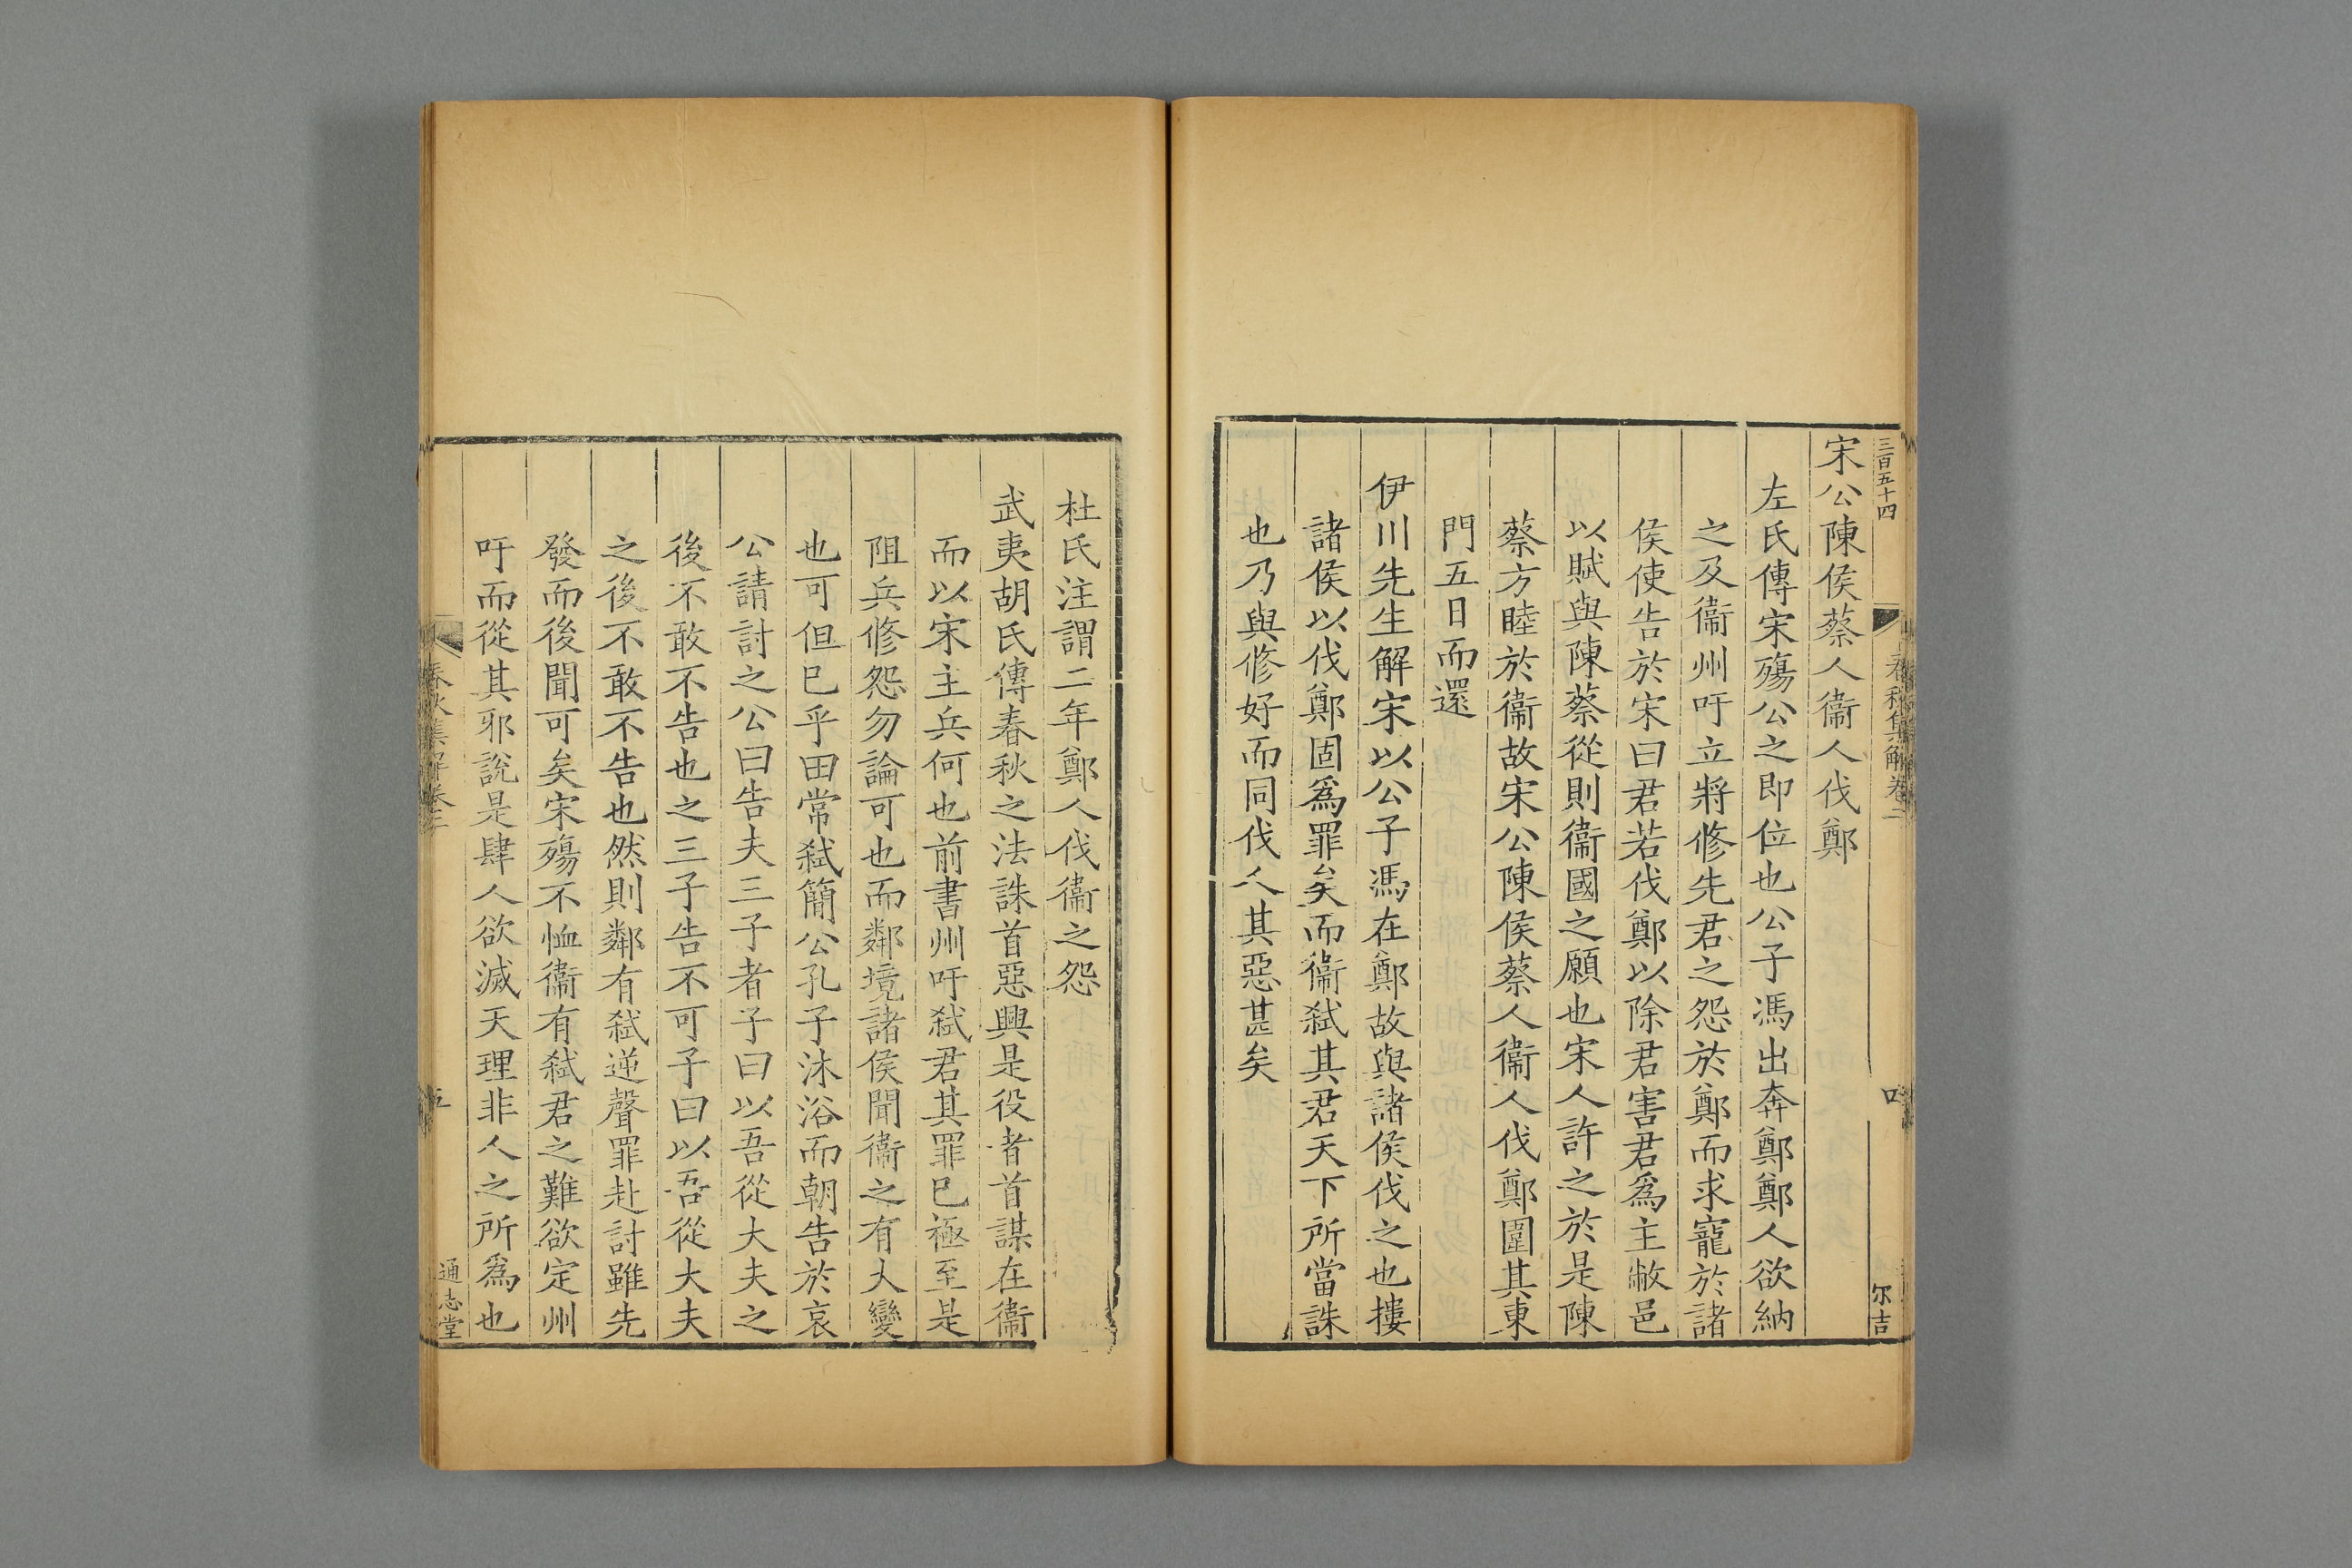 三百五十四
春秋集解卷二
尔吉
宋公陳侯蔡人衞人伐鄭
左氏傳宋殤公之即位也公子馮出奔鄭鄭人欲納
之及衞州吁立將修先君之怨於鄭而求寵於諸
侯使告於宋曰君若伐鄭以除君害君爲主敝邑
以賦與陳蔡從則衞國之願也宋人許之於是陳
蔡方睦於衞故宋公陳侯蔡人衞人伐鄭圍其東
門五日而還
伊川先生解宋以公子馮在鄭故與諸侯伐之也摟
諸侯以伐鄭固爲罪矣而衞弑其君天下所當誅
也乃與修好而同伐人其惡甚矣
杜氏注謂二年鄭人伐衞之怨
武夷胡氏傳春秋之法誅首惡興是役者首謀在衞
而以宋主兵何也前書州吁弑君其罪已極至是
阻兵修怨勿論可也而鄰境諸侯聞衞之有大變
也可但已乎田常弑簡公孔子沐浴而朝告於哀
公請討之公曰告夫三子者子曰以吾從大夫之
後不敢不告也之三子告不可子曰以吾從大夫
之後不敢不告也然則鄰有弑逆聲罪赴討雖先
發而後聞可矣宋殤不恤衞有弑君之難欲定州
吁而從其邪說是肆人欲滅天理非人之所爲也
春秋集解卷二
五
通志堂